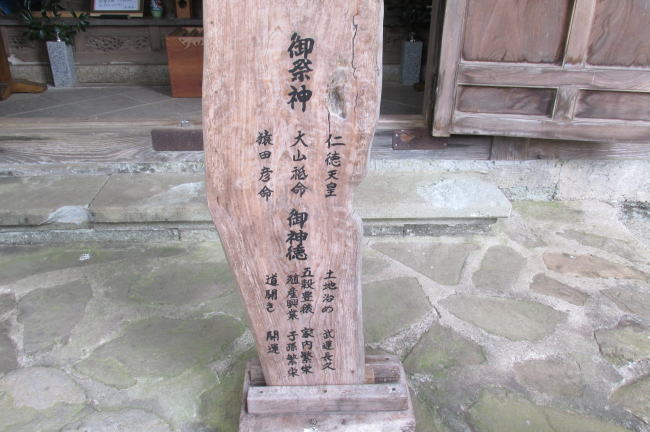 御祭神
仁徳天皇
大山祇命
猿田彦命
御神徳
土地治め 武運長久
五穀豊穣 家内繁栄
殖産興業 子孫繁栄
道開き 開運